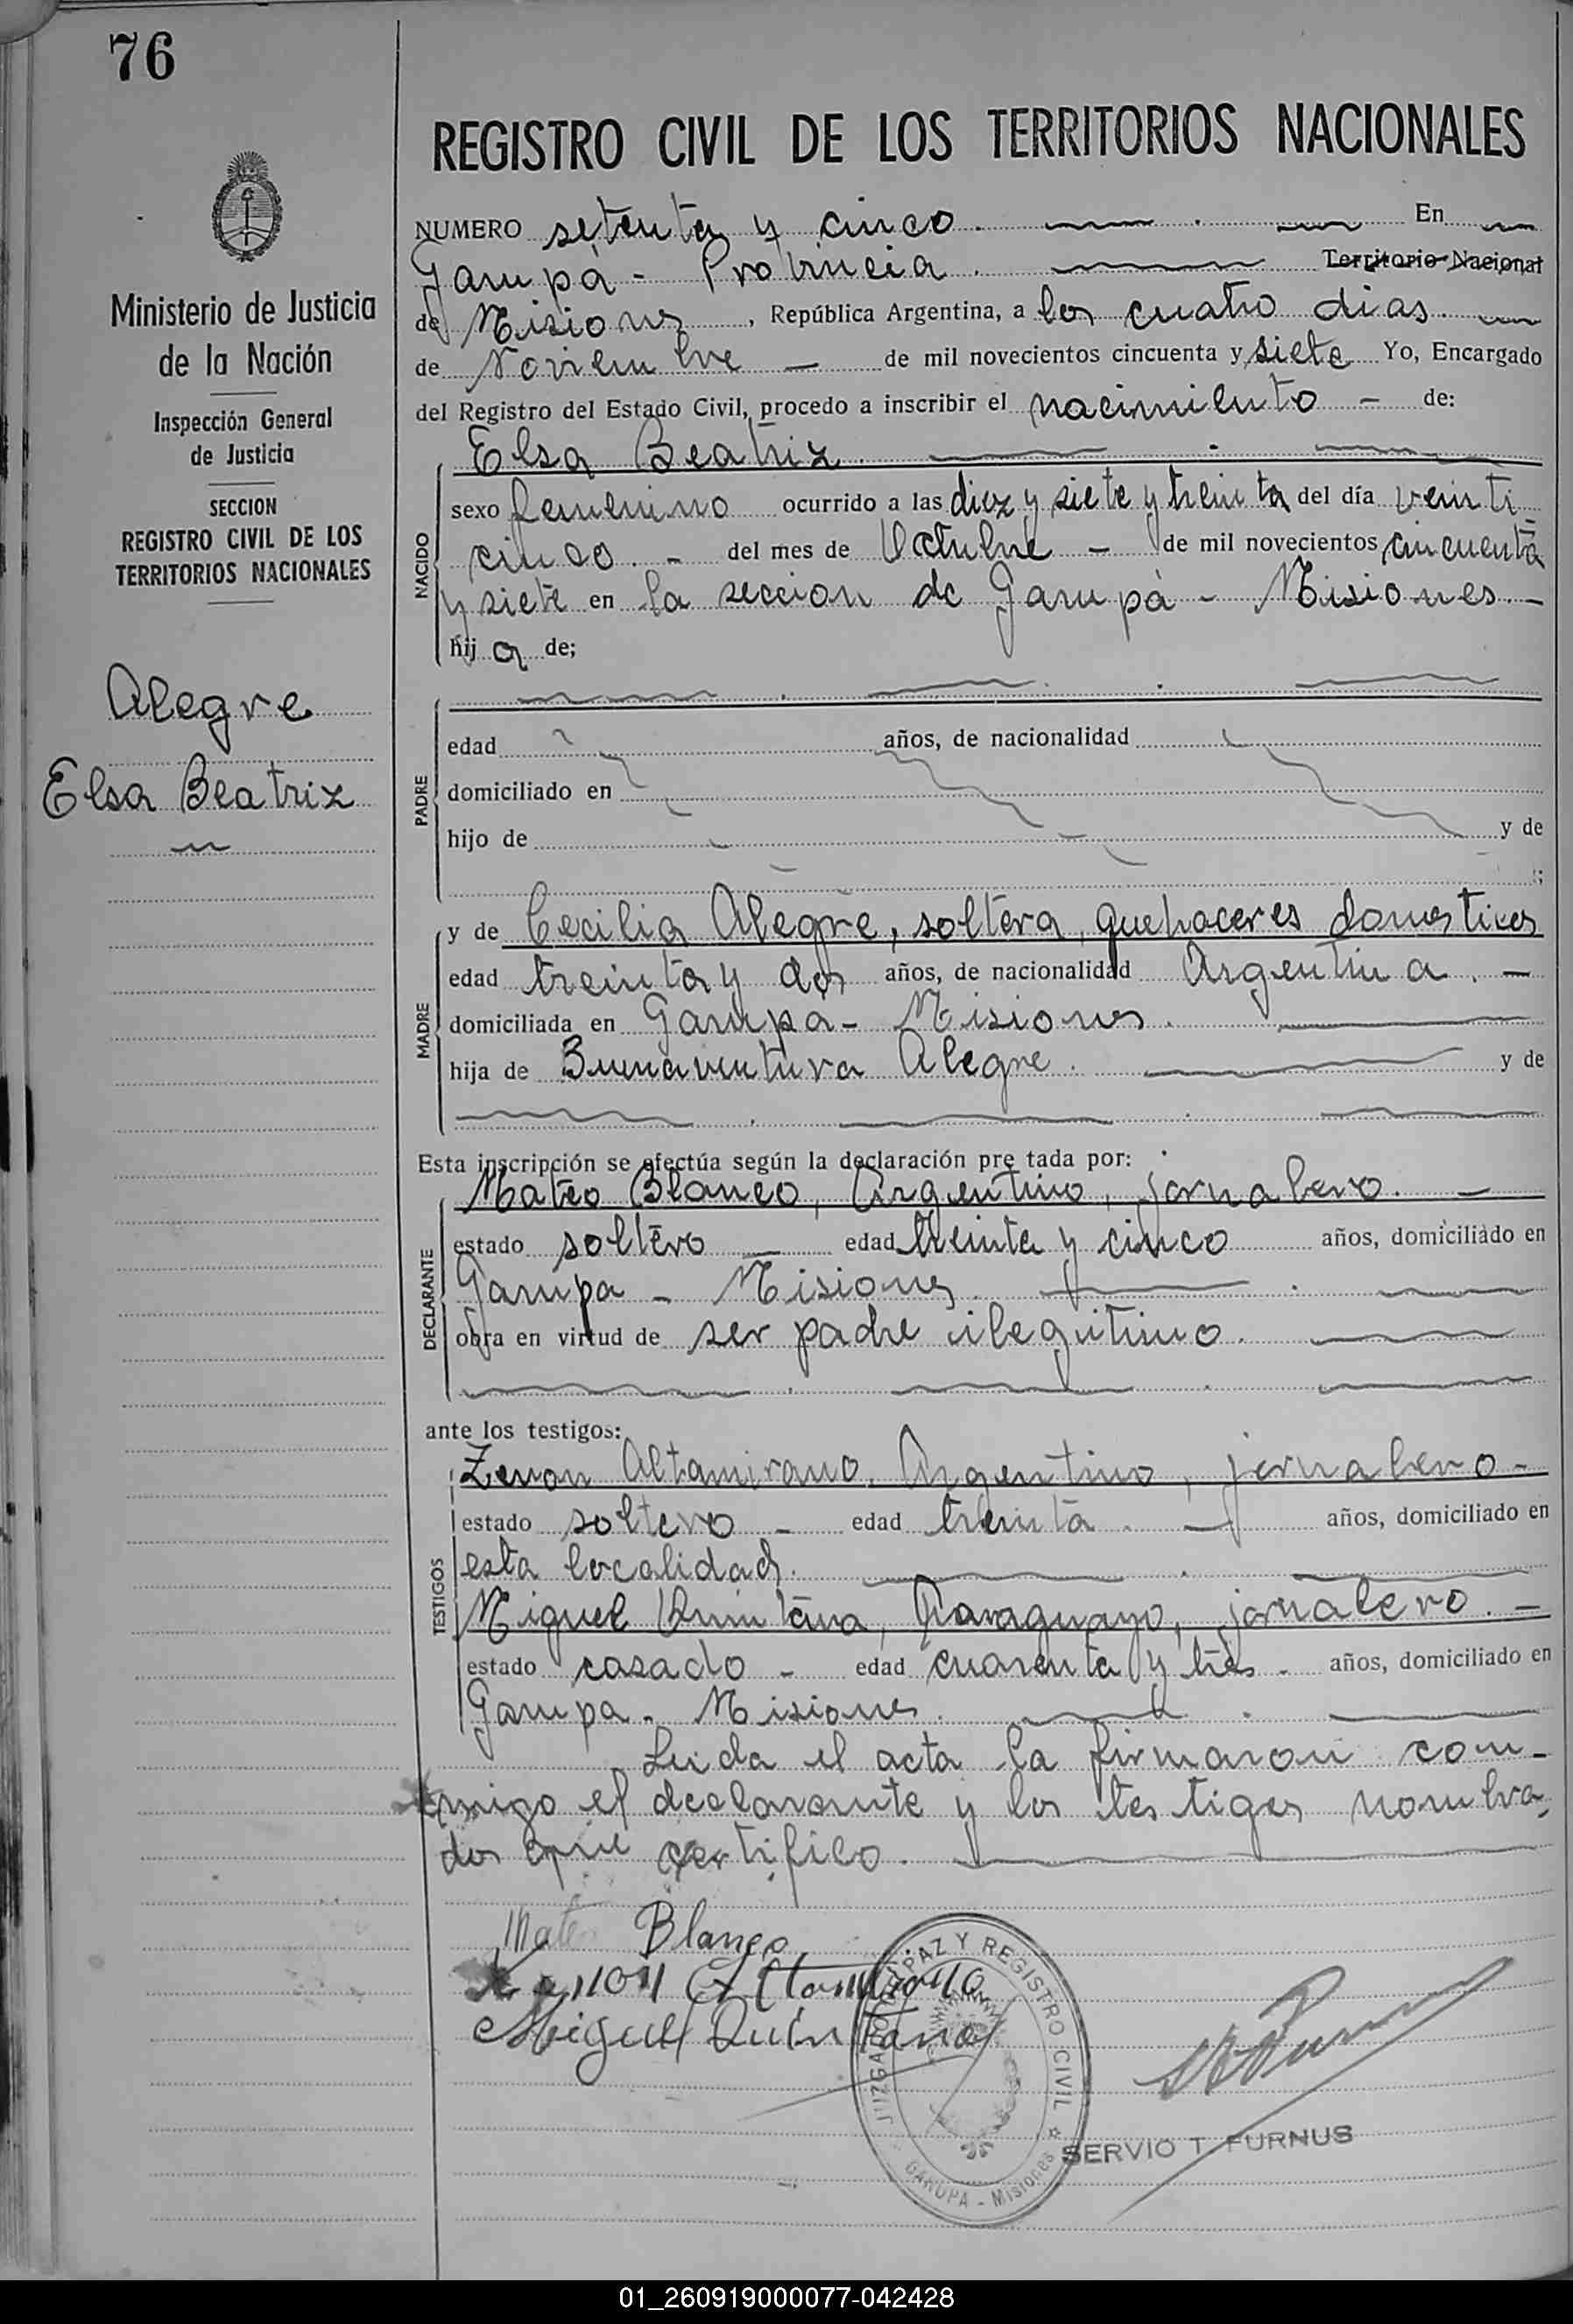 76
REGISTRO CIVIL DE LOS TERRITORIOS NACIONALES
Ministerio de Justicia
de la Nación
Inspección General
de Justicia
SECCION
REGISTRO CIVIL DE LOS
TERRITORIOS NACIONALES
Alegre
Elsa Beatriz
NUMERO setenta y cinco. En
Garupá - Provincia. Territorio Nacional
de Misiones, República Argentina, a los cuatro dias.
de Noviembre - de mil novecientos cincuenta y siete Yo, Encargado
del Registro del Estado Civil, procedo a inscribir el nacimiento - de:
Elsa Beatriz.
NACIDO
sexo femenino ocurrido a las diez y siete y treinta del día veinti
cinco. - del mes de Octubre - de mil novecientos cincuenta
y siete en la seccion de Garupá - Misiones. -
hij a de;
PADRE
edad años, de nacionalidad
domiciliado en
hijo de y de
;
MADRE
y de Cecilia Alegre, soltera, quehaceres domesticos
edad treinta y dos años, de nacionalidad Argentina. -
domiciliada en Garupa - Misiones.
hija de Buenaventura Alegre. y de
Esta inscripción se efectúa según la declaración pre tada por:
DECLARANTE
Mateo Blanco, Argentino, jornalero. -
estado soltero edad treinta y cinco años, domiciliado en
Garupa - Misiones.
obra en virtud de ser padre ilegitimo.
ante los testigos:
TESTIGOS
Zenon Altamirano, Argentino, jornalero -
estado soltero - edad treinta. años, domiciliado en
esta localidad.
Miguel Quintana, Paraguayo, jornalero. -
estado casado - edad cuarenta y tres - años, domiciliado en
Garupa - Misiones.
Leida el acta la firmaron con-
migo el declarante y los testigos nombra-
dos que certifico.
Mateo Blanco
Zenon Altamirano
Miguel Quintana
JUZGADO DE PAZ Y REGISTRO CIVIL
GARUPA - Misiones
SERVIO T. FURNUS
01_260919000077-042428